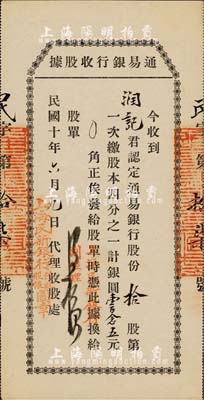 上海陽明拍賣
通易銀行收股據
今收到
潤記君認定通易銀行股份拾股第
一次繳股本四分之一計銀圓壹百念五元
角正俟發給股單時憑此據換給
股單
民國十年六月 日代理收股處
民字第拾柒號